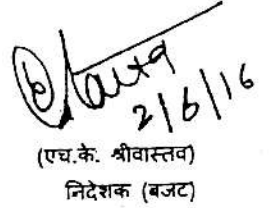 2/6/16
(एच.के. श्रीवास्तव)
निदेशक (बजट)